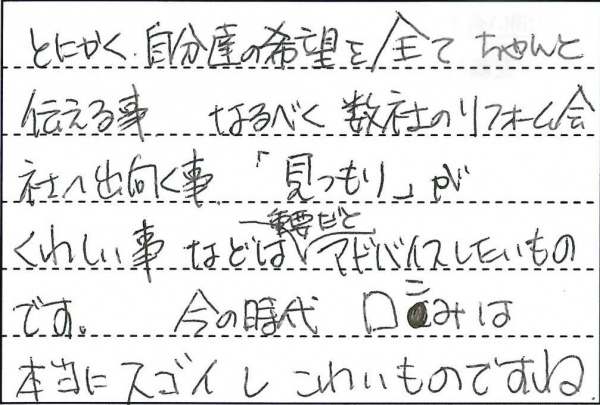 とにかく、自分達の希望を全て ちゃんと
伝える事 なるべく 数社のリフォーム会
社へ出向く事、「見つもり」が
くわしい事 などは一重要だとアドバイスしたいもの
です。 今の時代 口コみは
本当にスゴイし こわいものですね。